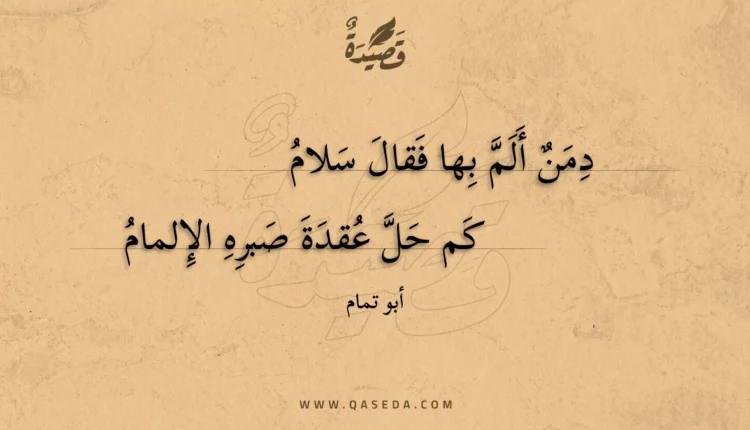 قَصِيدَةٌ
دِمَنٌ أَلَمَّ بِها فَقالَ سَلامُ
كَم حَلَّ عُقدَةَ صَبرِهِ الإِلمامُ
أبو تمام
WWW.QASEDA.COM